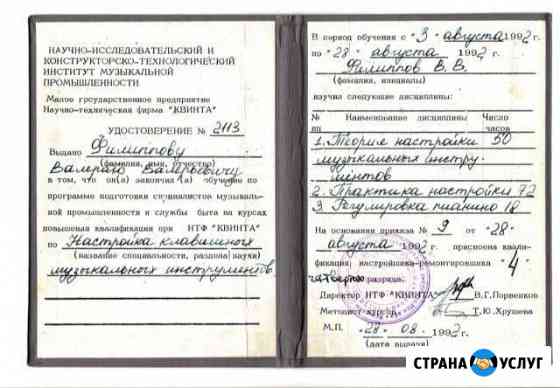 НАУЧНО-ИССЛЕДОВАТЕЛЬСКИЙ И
КОНСТРУКТОРСКО-ТЕХНОЛОГИЧЕСКИЙ
ИНСТИТУТ МУЗЫКАЛЬНОЙ
ПРОМЫШЛЕННОСТИ
Малое государственное предприятие
Научно-техническая фирма "КВИНТА"
УДОСТОВЕРЕНИЕ № 2113
Выдано Филиппову
(фамилия, имя, отчество)
Валерию Валерьевичу
в том, что он(а) закончил(а) обучение по
программе подготовки специалистов музыкаль-
ной промышленности и службы быта на курсах
повышения квалификации при НТФ "КВИНТА"
по Настройка клавишных
(название специальности, раздела науки)
музыкальных инструментов
В период обучения с "3" августа 1992 г.
по "28" августа 1992 г.
Филиппов В. В.
(фамилия, инициалы)
изучил следующие дисциплины:
№ пп Наименование дисциплины Число часов
1. Теория настройки 50
музыкальных инстру-
ментов
2. Практика настройки 72
3. Регулировка пианино 18
На основании приказа № 9 от "28"
августа 1992 г. присвоена квали-
фикация настройщика-ремонтировщика "4"
четвертого разряда.
Директор НТФ "КВИНТА" В.Г.Порвенков
Методист курсов Т.Ю.Хрущева
М.П. "28" 08 1992 г.
(дата выдачи)
СТРАНА УСЛУГ